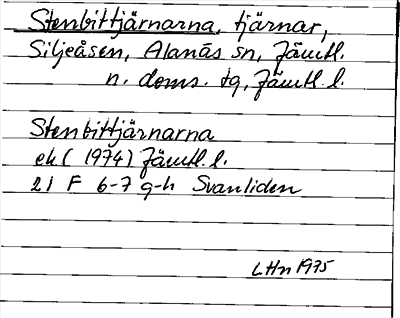 Stenbittjärnarna, tjärnar,
Siljeåsen, Alanäs sn, Jämtl.
n. doms. tg, Jämtl. l.
Stenbittjärnarna
ek (1974) Jämtl. l.
21 F 6-7 g-h Svanliden
LHn 1975